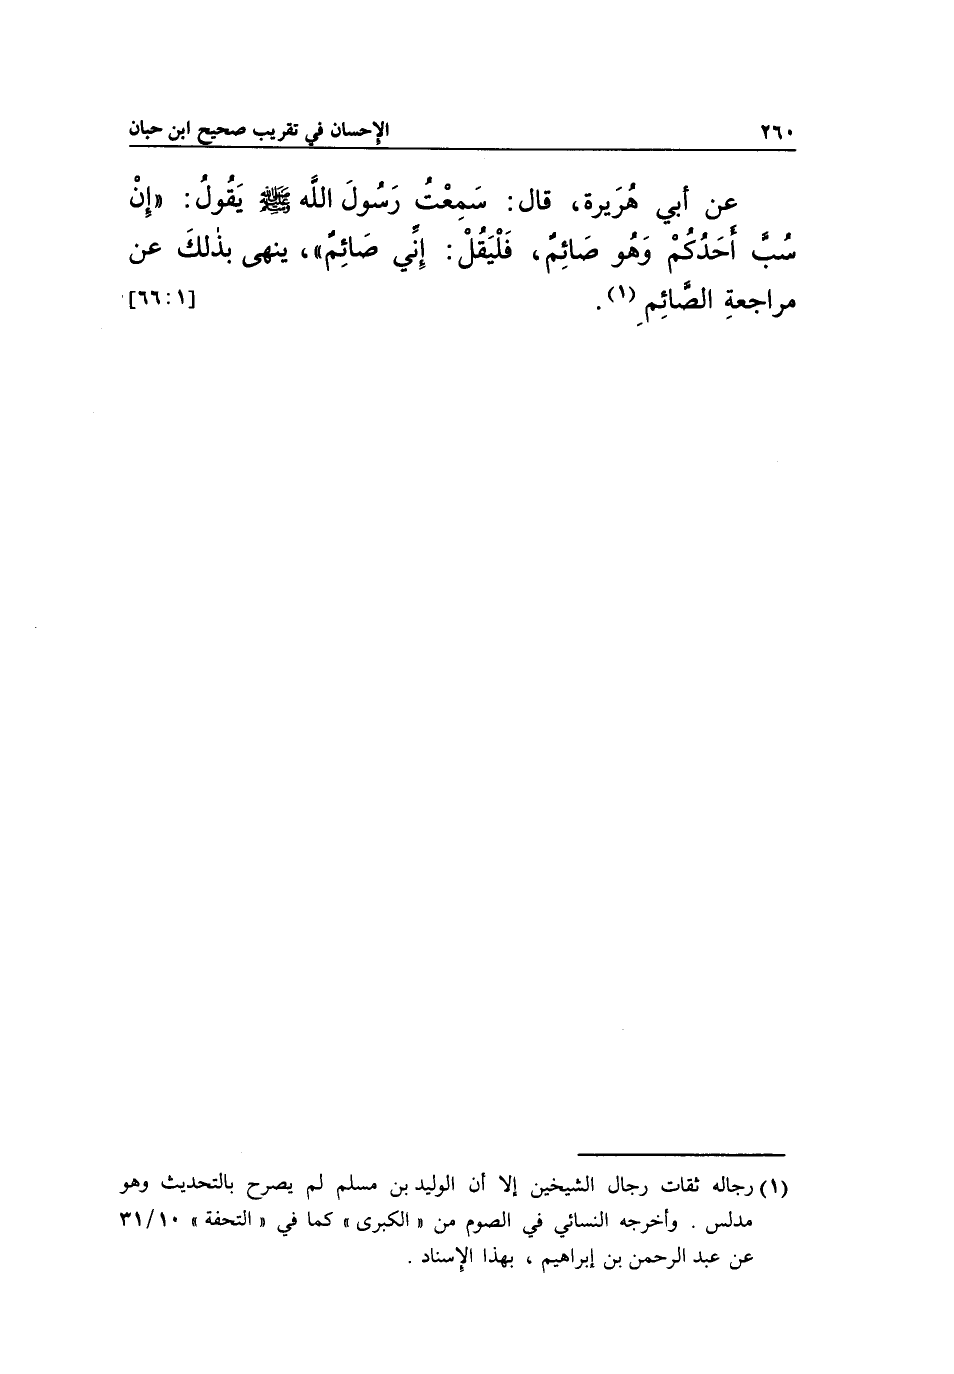 ٢٦٠ الإحسان في تقريب صحيح ابن حبان
عن أبي هُرَيرة، قال: سَمِعْتُ رَسُولَ اللَّه ﷺ يَقُولُ: «إِنْ
سُبَّ أَحَدُكُمْ وَهُو صَائِمٌ، فَلْيَقُلْ: إِنِّي صَائِمٌ»، ينهى بذٰلكَ عن
مراجعةِ الصَّائِمِ (١). [٦٦:١]
(١) رجاله ثقات رجال الشيخين إلا أن الوليد بن مسلم لم يصرح بالتحديث وهو
مدلس . وأخرجه النسائي في الصوم من « الكبرى » كما في « التحفة » ٣١/١٠
عن عبد الرحمن بن إبراهيم ، بهذا الإسناد .